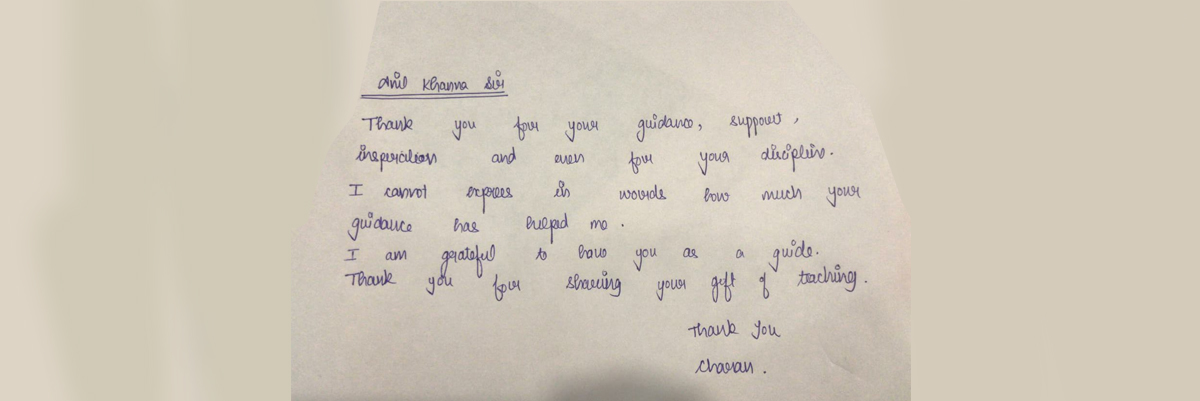 Anil Khanna Sir
Thank you for your guidance, support,
inspiration and even for your discipline.
I cannot express in words how much your
guidance has helped me.
I am grateful to have you as a guide.
Thank you for sharing your gift of teaching.
Thank You
Charan.